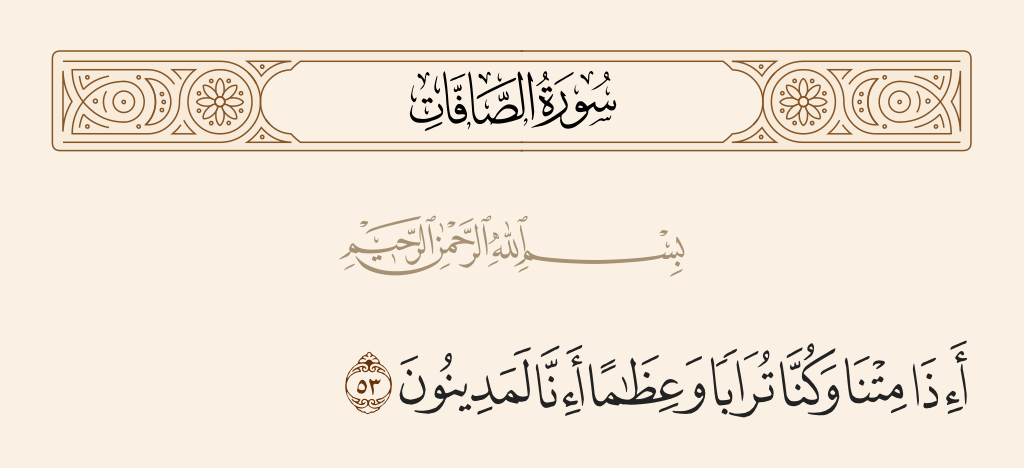 سُورَةُ الصَّافَّاتِ
بِسْمِ ٱللَّهِ ٱلرَّحْمَٰنِ ٱلرَّحِيمِ
أَءِذَا مِتْنَا وَكُنَّا تُرَابًا وَعِظَٰمًا أَءِنَّا لَمَدِينُونَ ٥٣